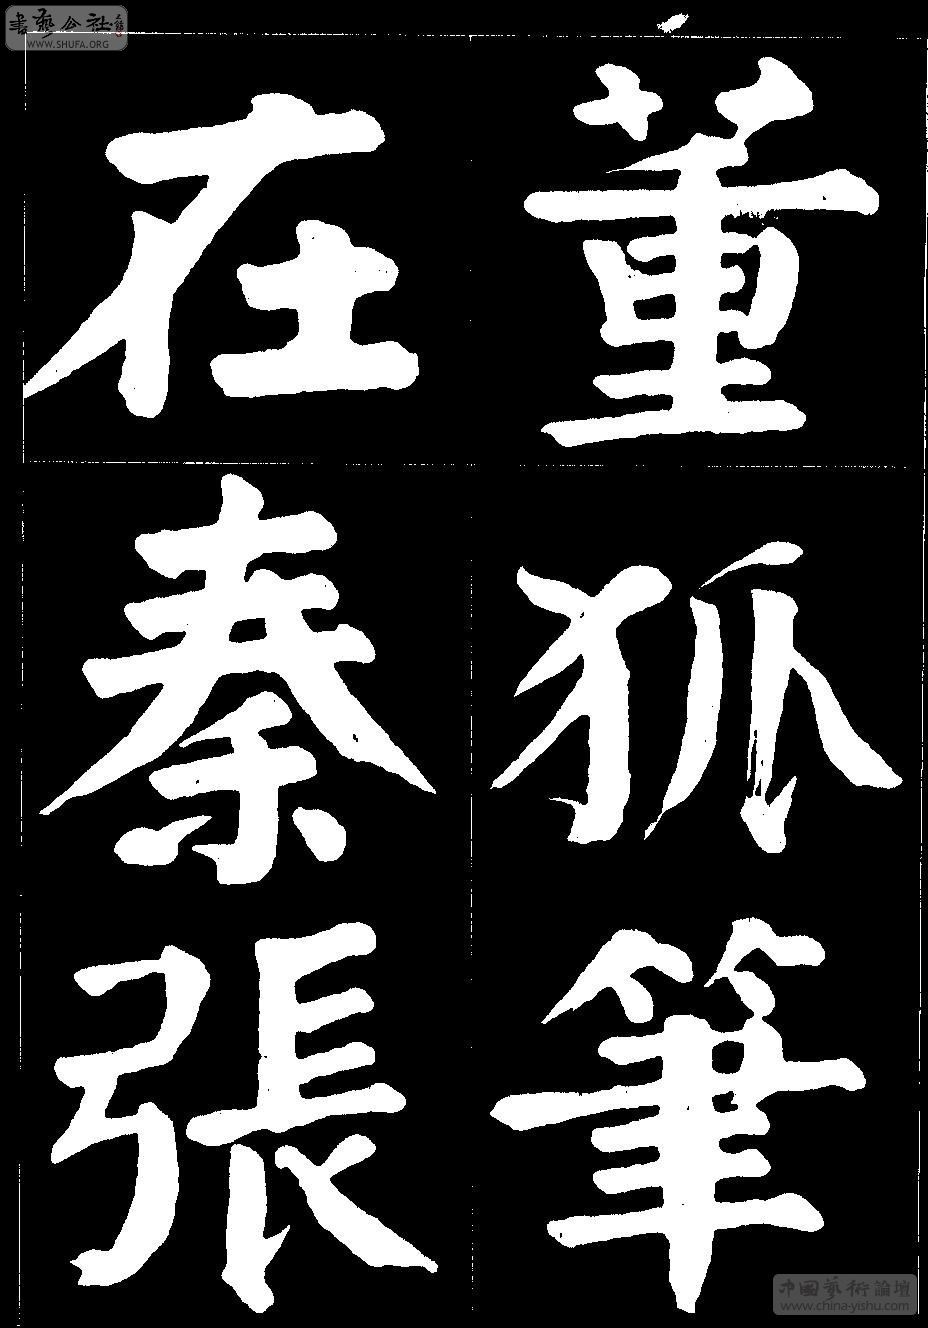 董狐筆
在秦張
書藝公社
WWW.SHUFA.ORG
中国藝術論壇
www.china-yishu.com